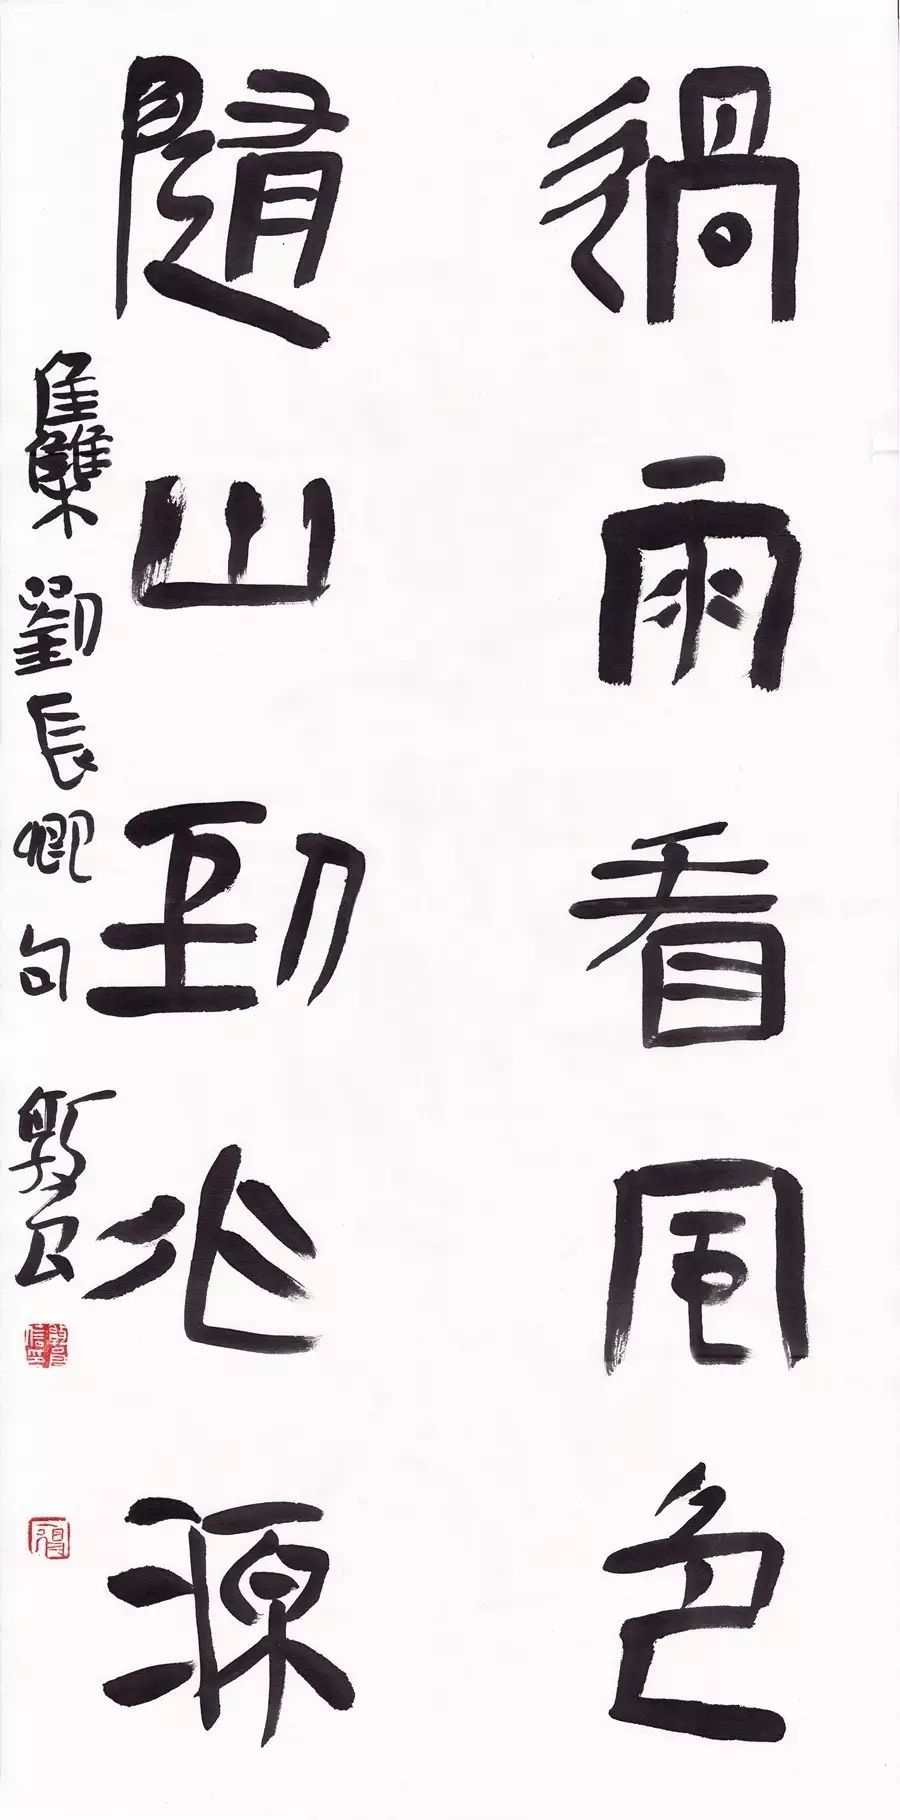 過雨看風色
隨山到水源
集劉長卿句